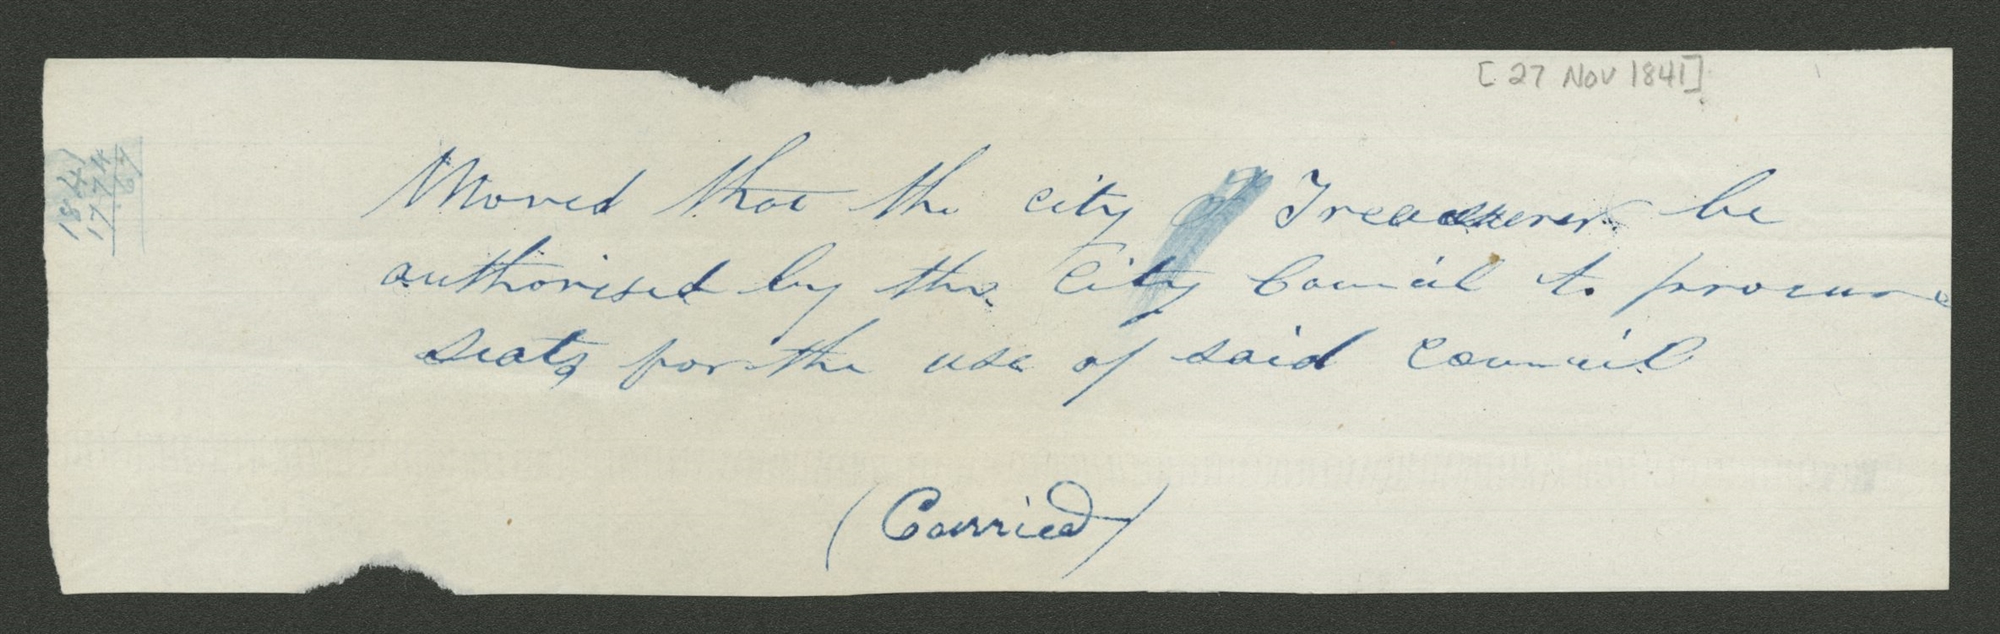 [27 Nov 1841]
Moved that the city Treasurer be
authorised by the City Council to procure
seats for the use of said council
(Carried)
1841
1774
67